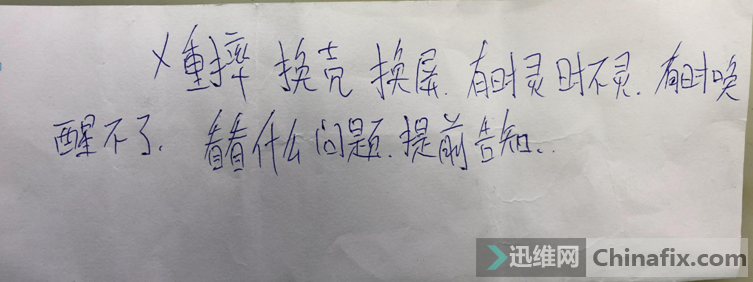 X重摔 换壳 换屏. 有时灵时不灵. 有时唤
醒不了. 看看什么问题. 提前告知..
迅维网 Chinafix.com